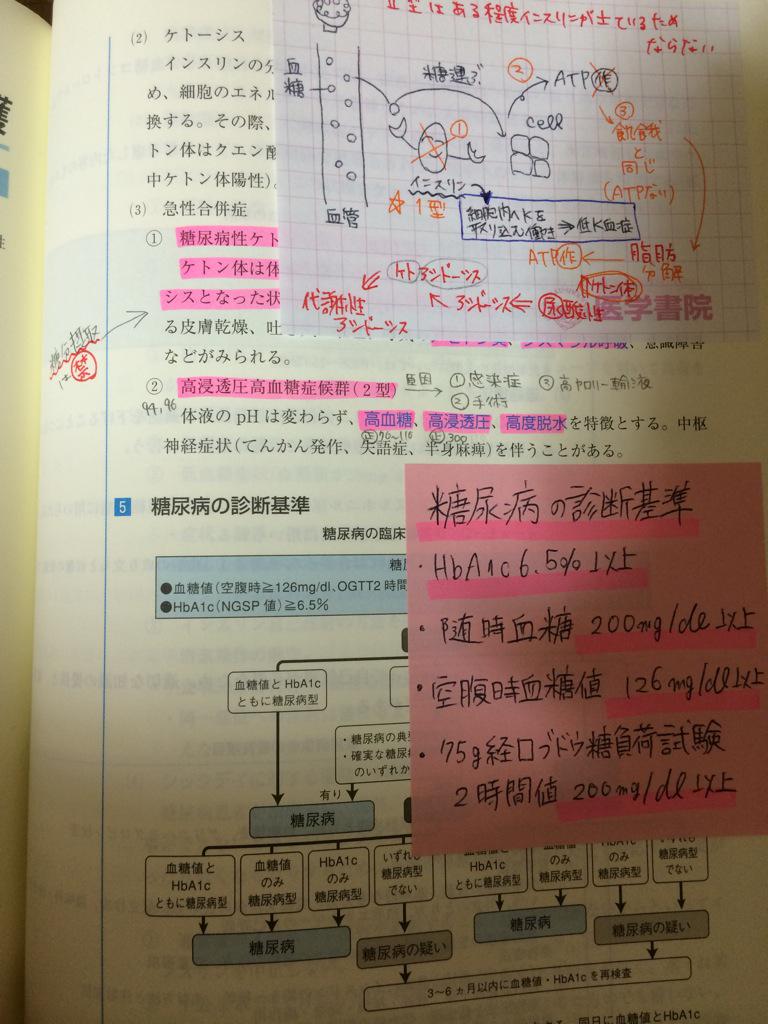 II型はある程度インスリンが出ているため
ならない
血糖
糖運ぶ
②
ATP作
cell
①
③
飢餓
と
同じ
(ATPない)
インスリン
☆1型
血管
細胞内へKを
取り込む働き⇒低K血症
脂肪
分解
ATP作
ケトン体
酸性
アシドーシス
ケトアシドーシス
代謝性
アシドーシス
医学書院
(2) ケトーシス
インスリンの
め、細胞のエネル
換する。その際、
トン体はクエン酸
中ケトン体陽性)。
(3) 急性合併症
① 糖尿病性ケト
ケトン体は体
シスとなった状
る皮膚乾燥、
などがみられる。
糖分摂取
は禁
② 高浸透圧高血糖症候群(2型)
原因
①感染症 ③高カロリー輸液
②手術
体液のpHは変わらず、高血糖、高浸透圧、高度脱水を特徴とする。中枢
正70~110 正300
神経症状(てんかん発作、失語症、半身麻痺)を伴うことがある。
5 糖尿病の診断基準
糖尿病の臨床
●血糖値(空腹時≧126mg/dl、OGTT2時間
●HbA1c(NGSP値)≧6.5%
血糖値とHbA1c
ともに糖尿病型
・糖尿病の典
・確実な糖尿
のいずれか
有り
糖尿病
血糖値と
HbA1c
ともに糖尿病型
血糖値
のみ
糖尿病型
HbA1c
のみ
糖尿病型
いずれも
糖尿病型
でない
HbA1c
ともに糖尿病型
のみ
糖尿病型
HbA1c
のみ
糖尿病型
糖尿病型
でない
糖尿病
糖尿病の疑い
糖尿病
糖尿病の疑い
3~6ヵ月以内に血糖値・HbA1cを再検査
同日に血糖値とHbA1c
糖尿病の診断基準
・HbA1c 6.5%以上
・随時血糖 200mg/dl以上
・空腹時血糖値 126mg/dl以上
・75g経口ブドウ糖負荷試験
2時間値 200mg/dl以上